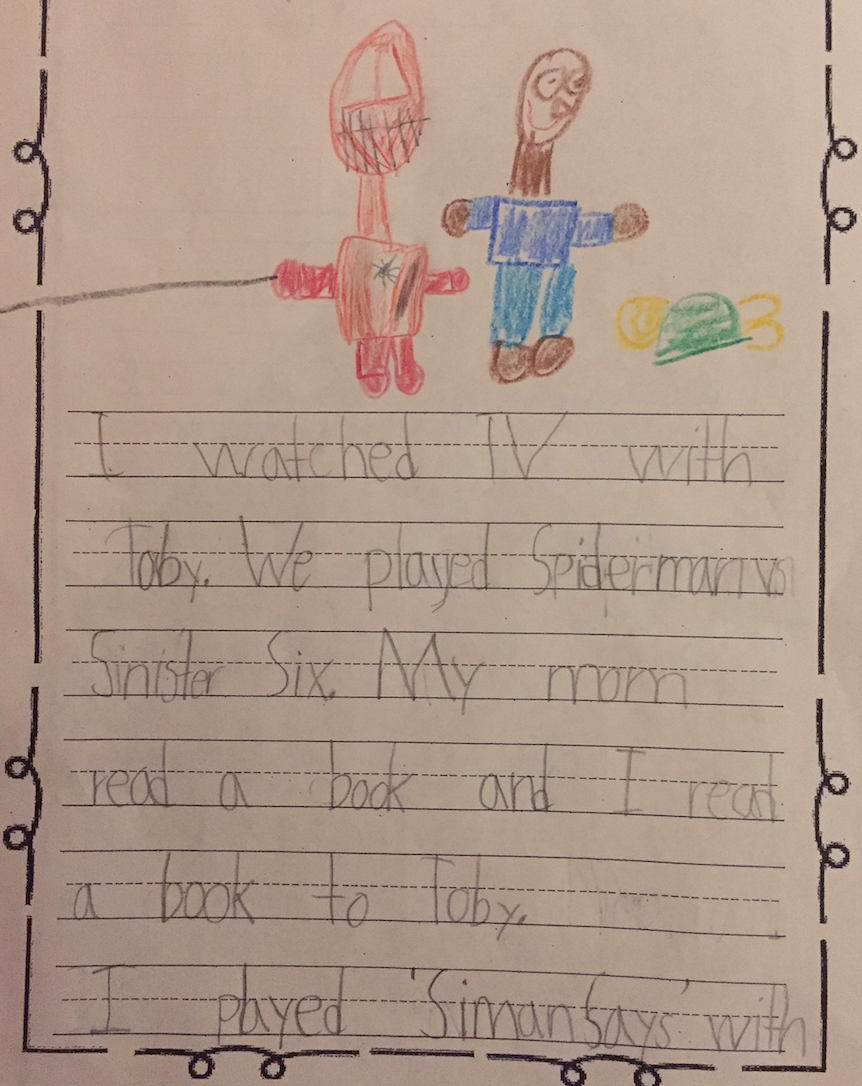 I watched TV with
Toby. We played Spiderman vs
Sinister Six. My mom
read a book and I read
a book to Toby.
I played 'Siman Says' with